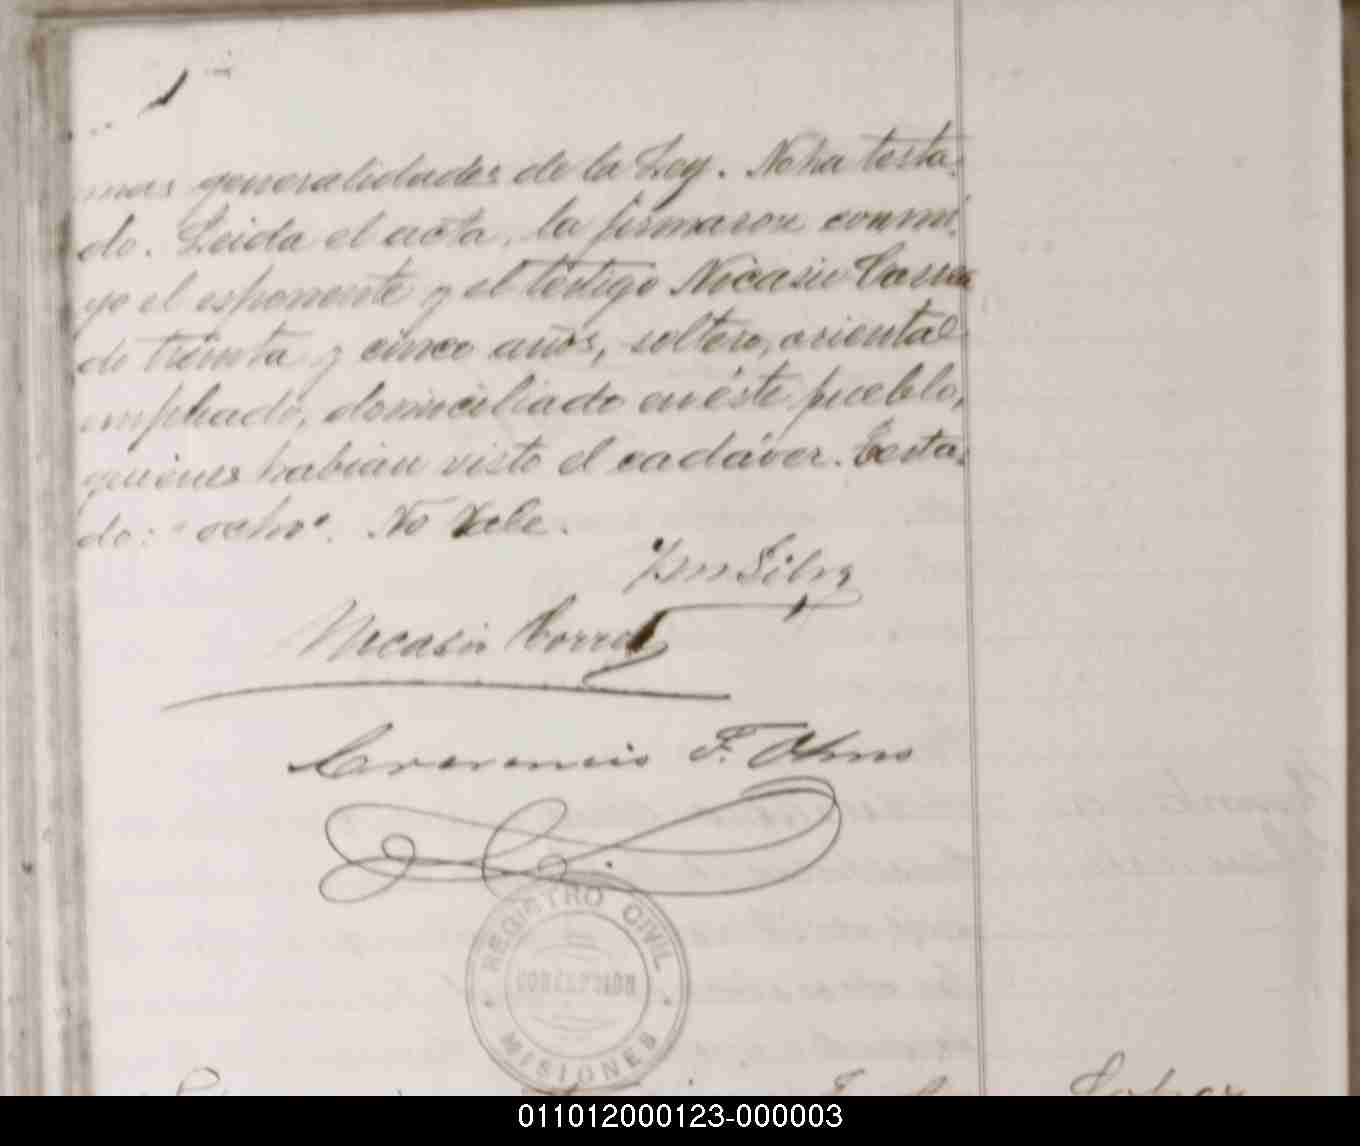 mas generalidades de la Ley. No ha testa-
do. Leida el acta, la firmaron conmi-
go el esponente y el testigo Nicasio Correa
de treinta y cinco años, soltero, oriental
empleado, domiciliado en éste pueblo,
quienes habian visto el cadáver. Testa-
do: "ocho". No Vale.
Silva
Nicasio Correa
F.
REGISTRO CIVIL
CONCEPCION
MISIONES
011012000123-000003